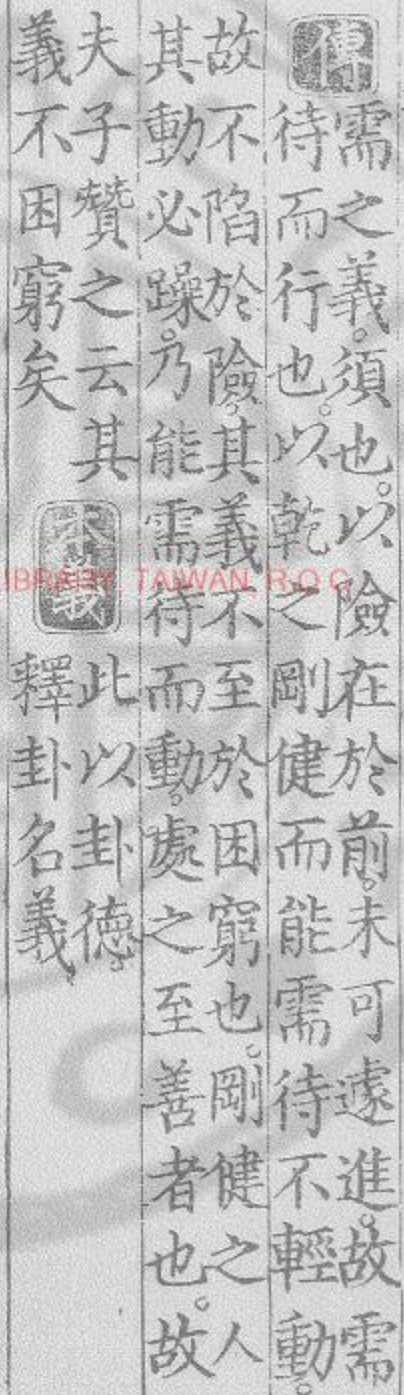 傳
需之義。須也。以險在於前。未可遽進。故需
待而行也。以乾之剛健。而能需待不輕動。
故不陷於險。其義不至於困窮也。剛健之人
其動必躁。乃能需待而動。處之至善者也。故
夫子贊之云其
義不困窮矣
本義
此以卦德。
釋卦名義。
LIBRARY, TAIWAN, R.O.C.